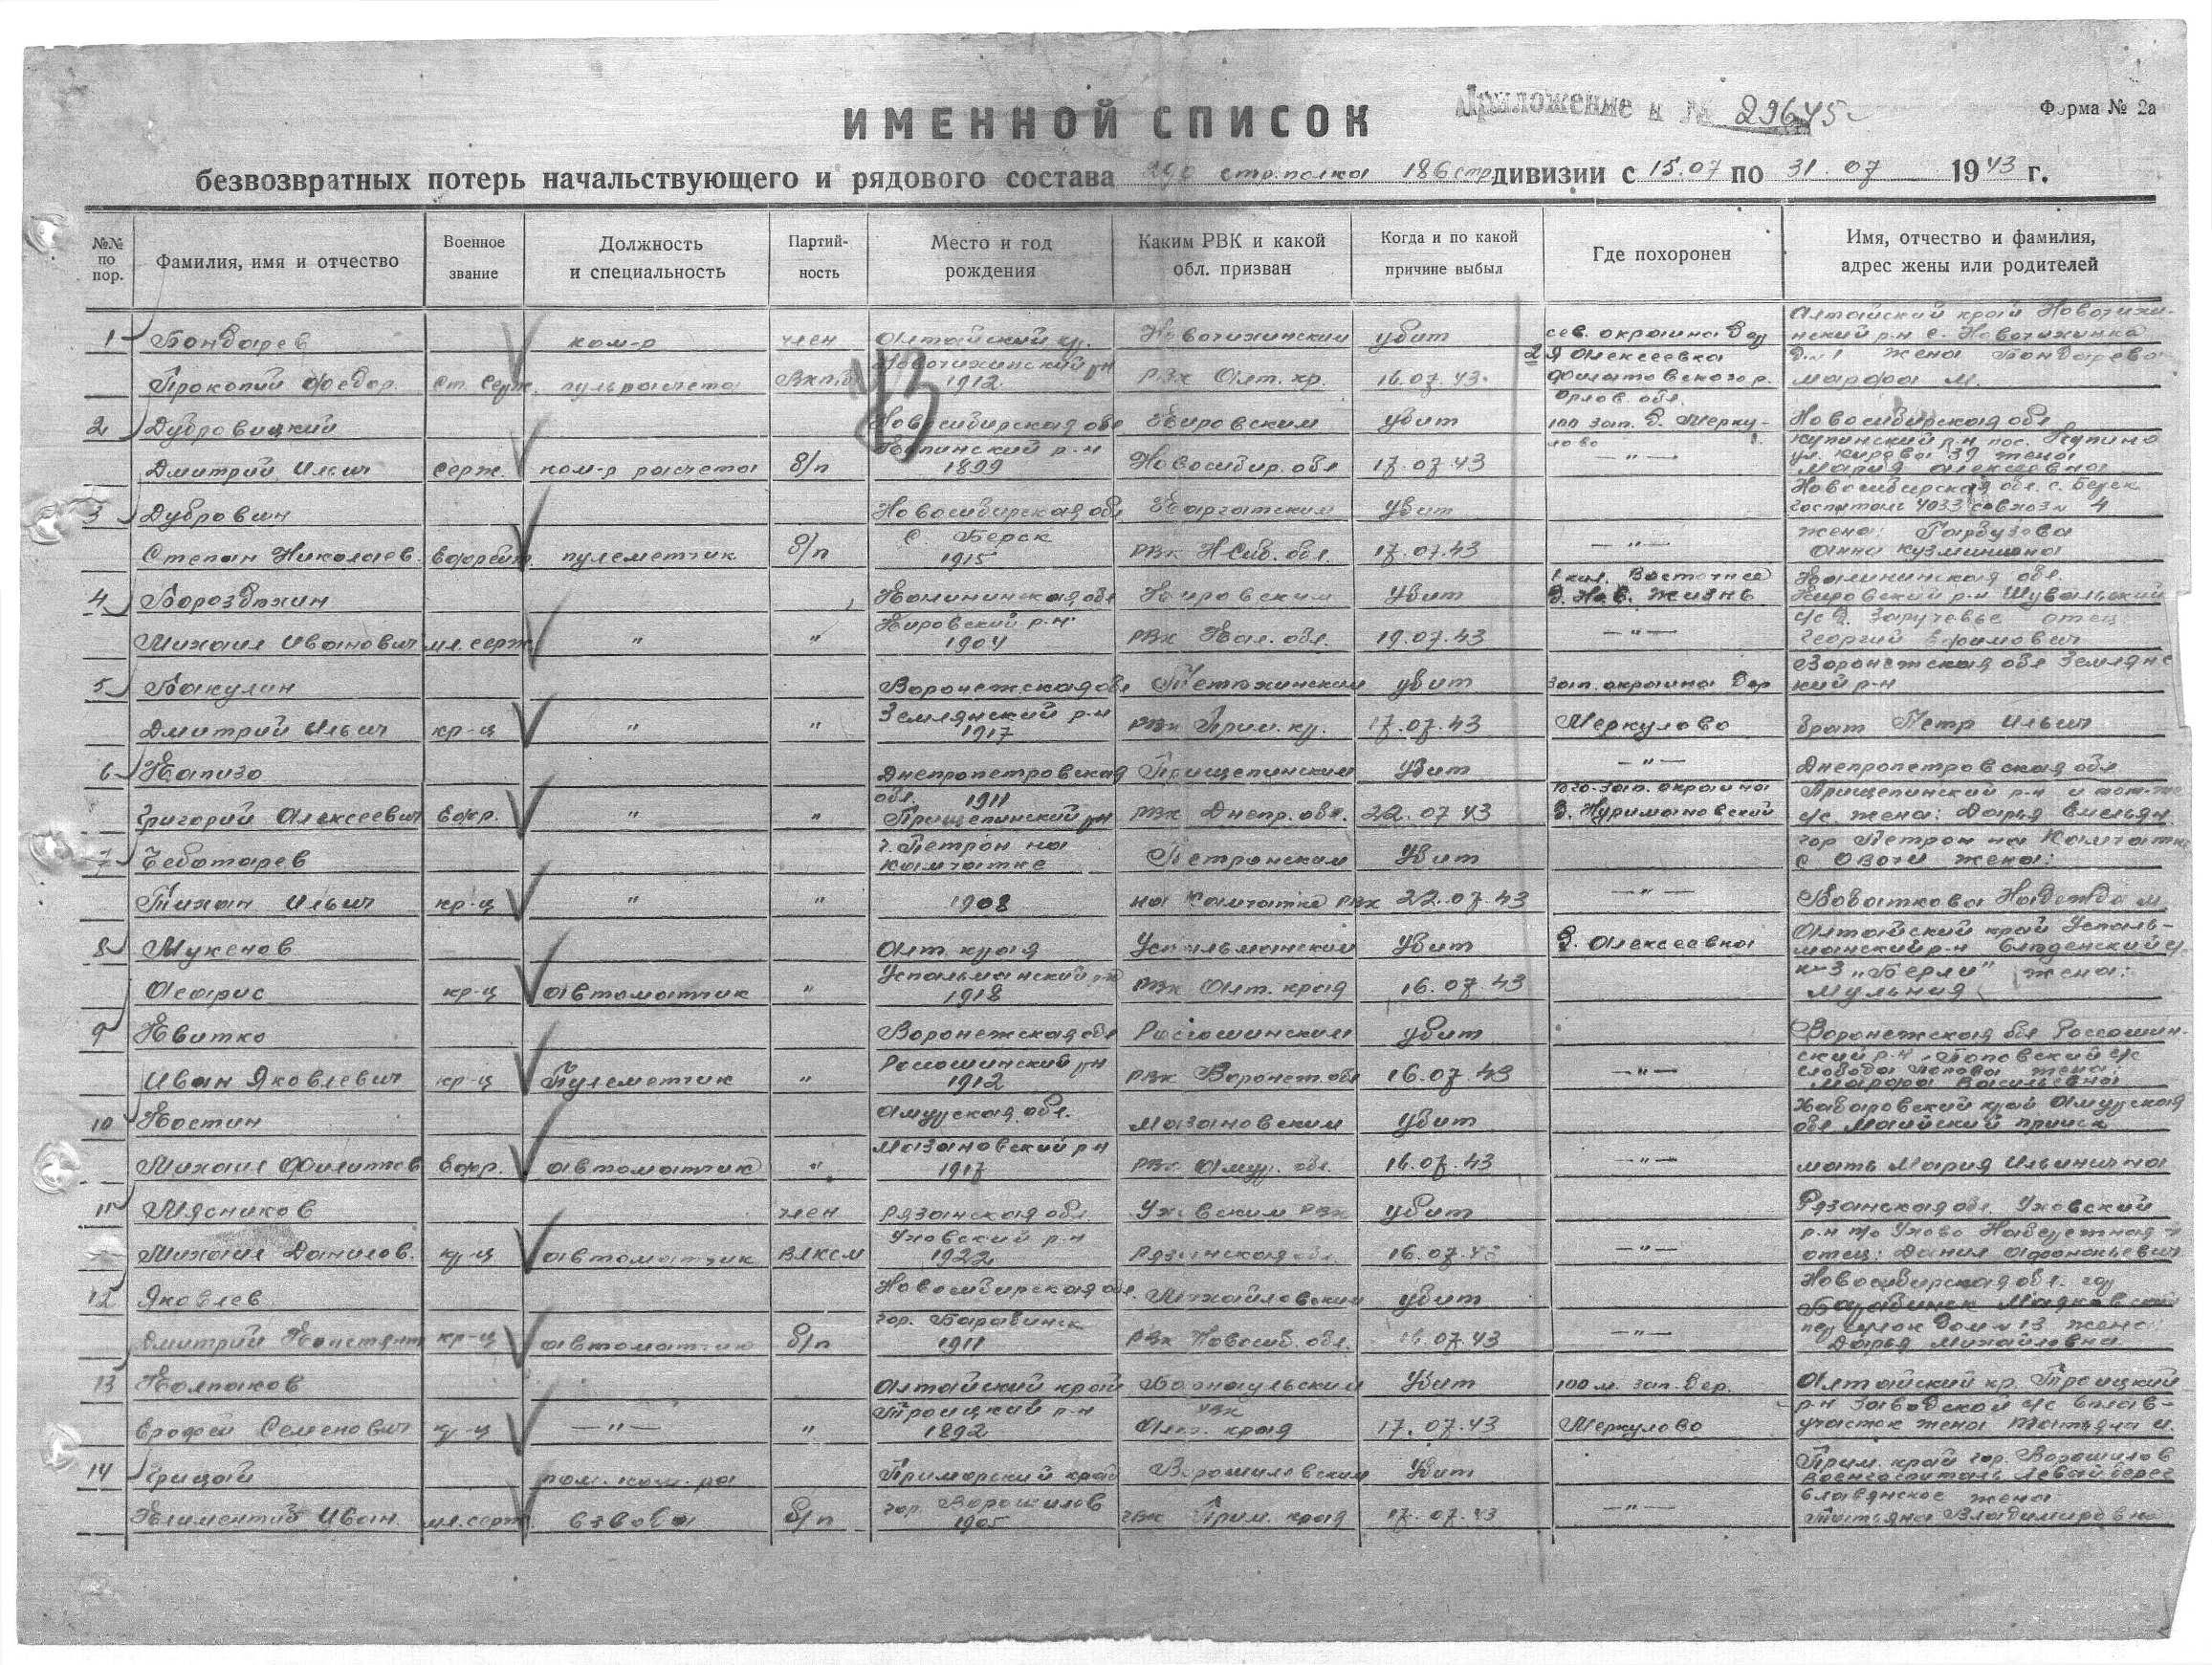 ИМЕННОЙ СПИСОК
Приложение к № 29645с
Форма № 2а
безвозвратных потерь начальствующего и рядового состава 290 стр. полка 186 стр дивизии с 15.07 по 31.07 1943 г.
№№ по пор.
Фамилия, имя и отчество
Военное звание
Должность и специальность
Партий- ность
Место и год рождения
Каким РВК и какой обл. призван
Когда и по какой причине выбыл
Где похоронен
Имя, отчество и фамилия, адрес жены или родителей
1 Бондарев ком-р член Алтайский кр. Новочихинским убит сев. окраина дер Алтайский край Новочихи-
нский р-н с. Новочихинка
Прокопий Федор. Ст. Серж. пульрасчета ВКП(б) Новочихинский р-н 1912 РВК Алт. кр. 16.07.43 Алексеевка жена Бондарева
Орлов. обл. Марфа М.
2 Дубровицкий Новосибирская обл Кировским убит 100 зап. д. Мерку- Новосибирская обл
лово Купинский р-н пос. Купино
Дмитрий Ильич серж. ком-р расчета б/п Купинский р-н 1899 Новосибир. обл 17.07.43 —"— ул. Кирова 39 жена
Мария Алексеевна
3 Дубровин Новосибирская обл Каргатским убит Новосибирская обл. с. Берск
госпиталь 4033 совхоз 4
Степан Николаев. Ефрейт. пулеметчик б/п с. Берск 1915 РВК НСиб. обл. 17.07.43 —"— жена: Гарбузова
Анна Кузминишна
4 Бороздкин Калининская обл Кировским убит 1 кил. Восточнее Калининская обл.
д. Нов. Жизнь Кировский р-н Шувальский
Михаил Иванович мл. серж. " " Кировский р-н 1904 РВК Кал. обл. 19.07.43 —"— с/с д. Заручевье отец
Георгий Ефимович
5 Бакулин Воронежская обл убит зап. окраина дер Воронежская обл Землянс
кий р-н
Дмитрий Ильич кр-ц " " Землянский р-н 1917 РВК Прим. кр. 17.07.43 Меркулово брат Петр Ильич
6 Капизо Днепропетровская Прищепинским убит —"— Днепропетровская обл
Григорий Алексеевич Ефр. " " обл. 1911 Прищепинский р-н РВК Днепр. обл. 22.07.43 юго-зап. окраина Прищепинский р-н
с/с. жена: Дарья Емельян
7 Чеботарев г. Петроп на Камчатке Петропским убит гор Петроп на Камчатке
жена:
Тихон Ильич кр-ц " " 1908 на Камчатке РВК 22.07.43 —"— Надежда М.
8 Мукенов Алт. края убит д. Алексеевка Алтайский край
кр-ц автоматчик " 1918 РВК Алт. края 16.07.43 к-з жена:
9 Квитко Воронежская обл Россошинским убит Воронежская обл Россошин-
ский р-н Поповский с/с
Иван Яковлевич кр-ц Пулеметчик " Россошинский р-н 1912 РВК Воронеж. обл 16.07.43 —"— слобода Попова жена:
Марфа Васильевна
10 Костин Амурская обл. Мазановским убит Хабаровский край Амурская
обл. Майский прииск
Михаил Филиппов Ефр. автоматчик " Мазановский р-н 1917 РВК Амур. обл. 16.07.43 —"— мать Мария Ильинична
11 Мясников член Рязанская обл. Уховским РВК убит Рязанская обл. Уховский
Михаил Данилов. кр-ц автоматчик ВЛКСМ Уховский р-н 1922 Рязанская обл. 16.07.43 —"— р-н п/о Ухово Набережная
отец: Данил Афонасьевич
12 Яковлев Новосибирская обл. Михайловским убит Новосибирская обл. гор
Барабинск Маяковский
Дмитрий Констант кр-ц автоматчик б/п гор. Барабинск 1911 РВК Новосиб. обл. 16.07.43 —"— переулок дом 13 жена
Дарья Михайловна
13 Колпаков Алтайский край Барнаульским убит 100 м. зап. дер. Алтайский кр. Троицкий
Ерофей Семенович кр-ц —"— " Троицкий р-н 1892 РВК Алт. края 17.07.43 Меркулово р-н Заводской с/с сплав-
участок жена Татьяна И.
14 Грицай пом. ком-ра Приморский край Ворошиловским убит Прим. край гор. Ворошилов
военгоспиталь левый берег
Климентий Иван. мл. серж. взвода б/п гор. Ворошилов 1905 РВК Прим. края 17.07.43 —"— Славянское жена
Татьяна Владимировна